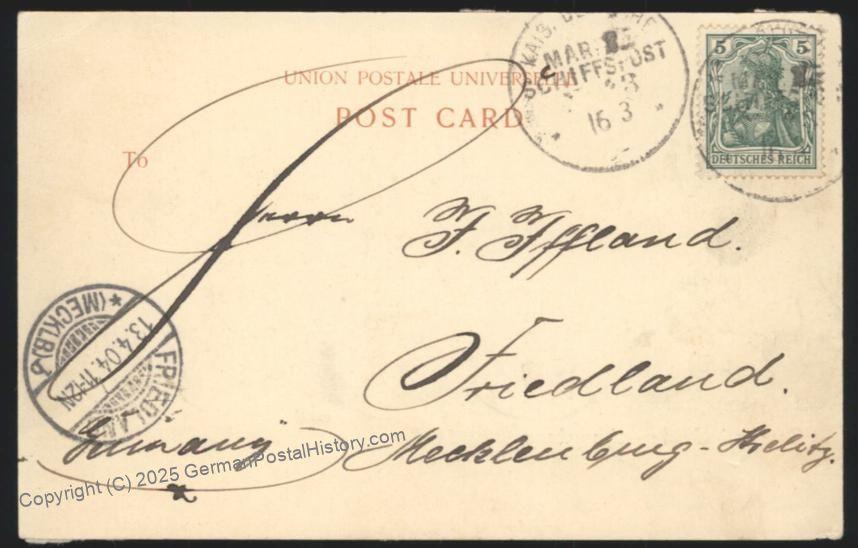 UNION POSTALE UNIVERSELLE
POST CARD
To
KAIS. DEUTSCHE
MAR.
SCHIFFSPOST
16 3
5 5
DEUTSCHES REICH
Herrn
F. Iffland.
Friedland.
Mecklenburg-Strelitz.
Germany
FRIEDLA
(MECKLB)
13.4.04.11-12N
Copyright (C) 2025 GermanPostalHistory.com